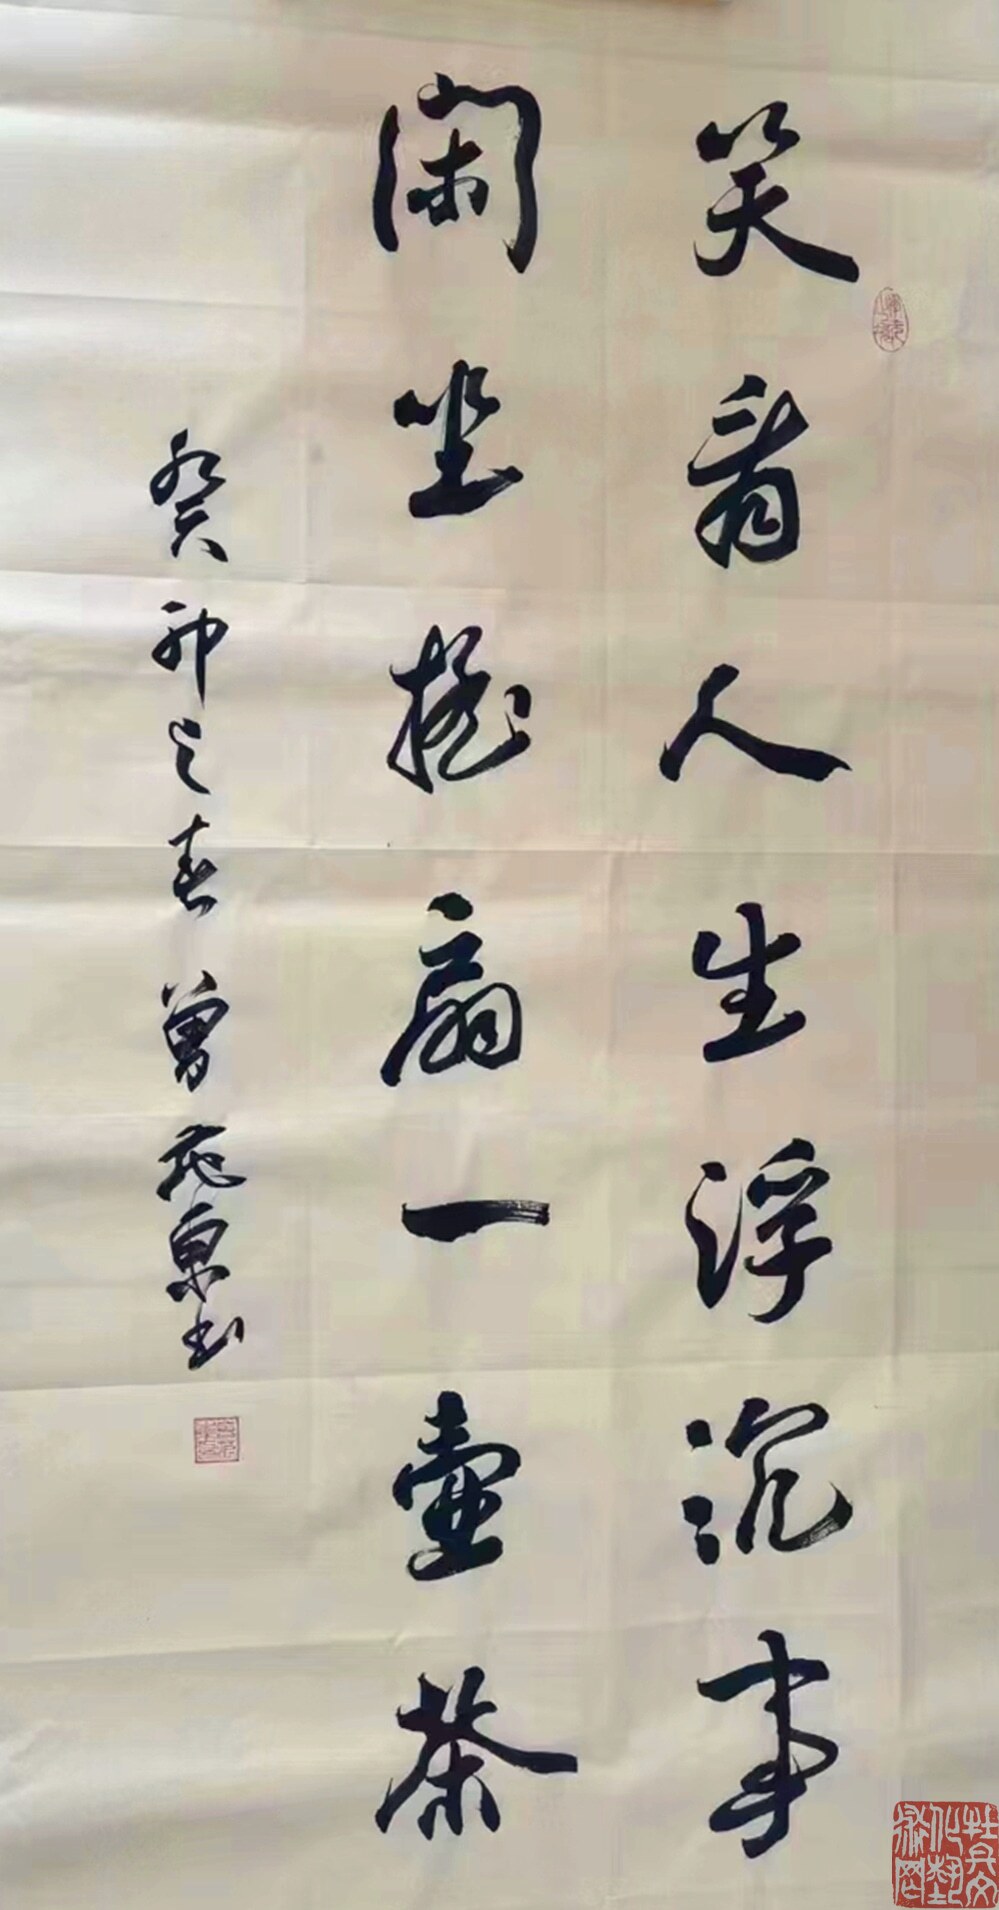 笑看人生浮沉事
闲坐摇扇一壶茶
癸卯之春曾宪东书